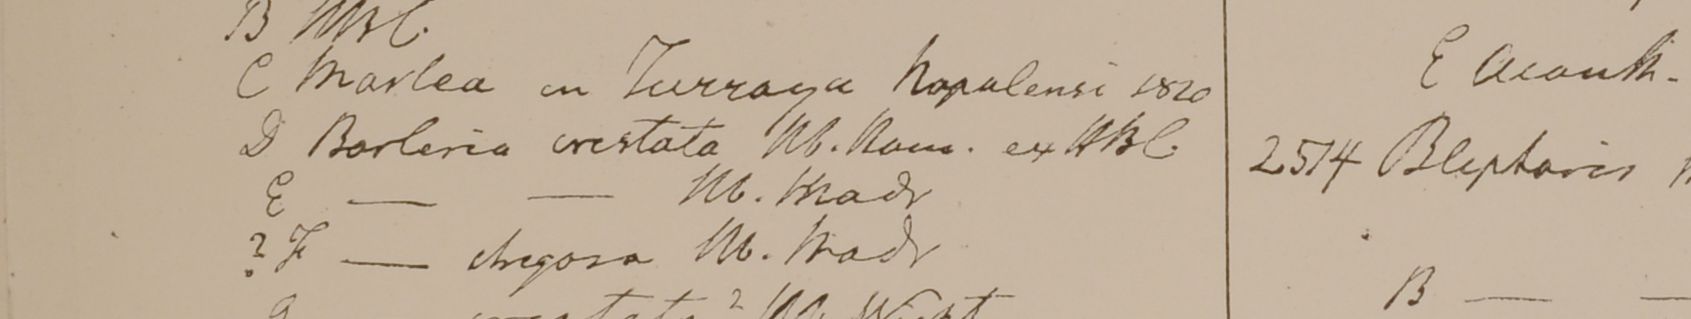 B HBC.
C Marlea an Turraya Napalensi 1820
D Barleria cristata Hb. Ham. ex HBC
E — — Hb. Madr
? F — strigosa Hb. Madr
cristata? Hb. Wight
E Acanth-
2514 Blepharis
B — —